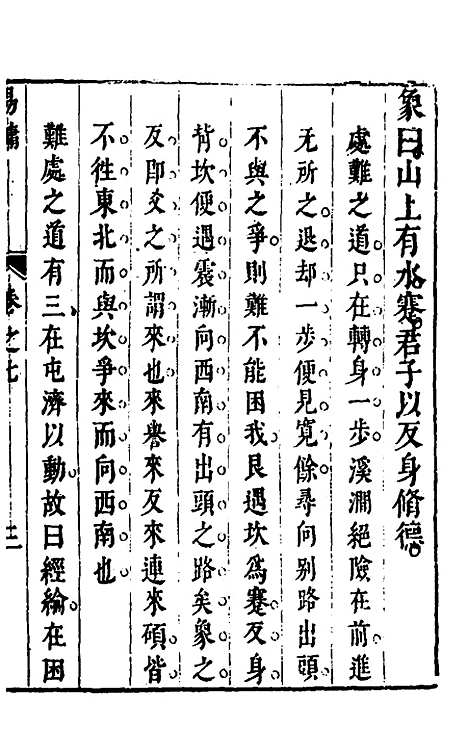 象曰山上有水蹇君子以反身脩德
處難之道只在轉身一步溪澗絕險在前進
无所之退却一步便見寬餘尋向别路出頭
不與之爭則難不能困我艮遇坎爲蹇反身
背坎便遇震漸向西南有出頭之路矣象之
反卽爻之所謂來也來譽來反來連來碩皆
不徃東北而與坎爭來而向西南也
難處之道有三在屯濟以動故曰經綸在困
易牗
卷之七